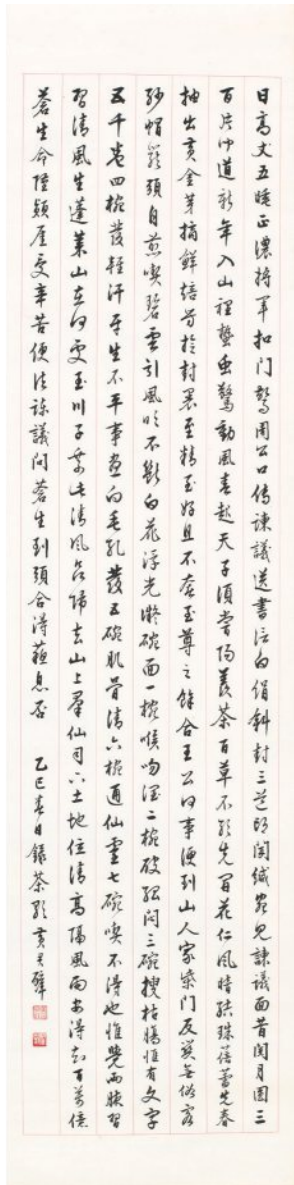 日高丈五睡正濃將軍扣門驚周公口傳諫議送書信白絹斜封三道印開緘宛見諫議面首閱月團三
百片聞道新年入山裡蟄蟲驚動風春起天子須嘗陽羨茶百草不敢先開花仁風暗結珠蓓蕾先春
抽出黃金芽摘鮮焙芳旋封裹至精至好且不奢至尊之餘合王公何事便到山人家柴門反關無俗客
紗帽籠頭自煎喫碧雲引風吹不斷白花浮光凝碗面一椀喉吻潤二椀破孤悶三碗搜枯腸惟有文字
五千卷四椀發輕汗平生不平事盡向毛孔發五碗肌骨清六椀通仙靈七碗喫不得也惟覺兩腋習
習清風生蓬萊山在何處玉川子乘此清風欲歸去山上羣仙司下土地位清高隔風雨安得知百萬億
蒼生命墮顛崖受辛苦便從諫議問蒼生到頭合得蘇息否 乙巳春日錄茶歌 黃君璧